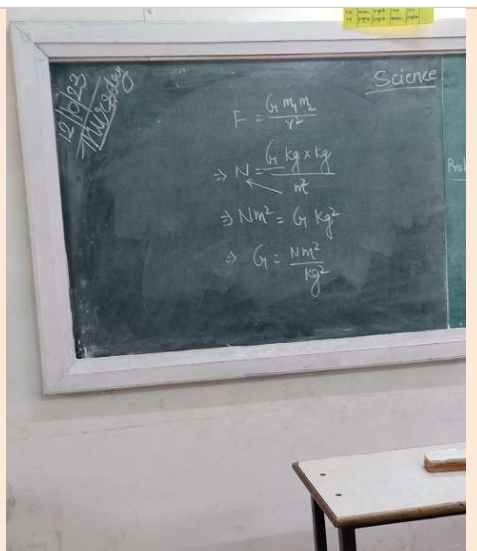 12/10/23
Thursday
Science
F = G m₁ m₂ / r²
⇒ N = G kg × kg / m²
⇒ Nm² = G kg²
⇒ G = Nm² / kg²